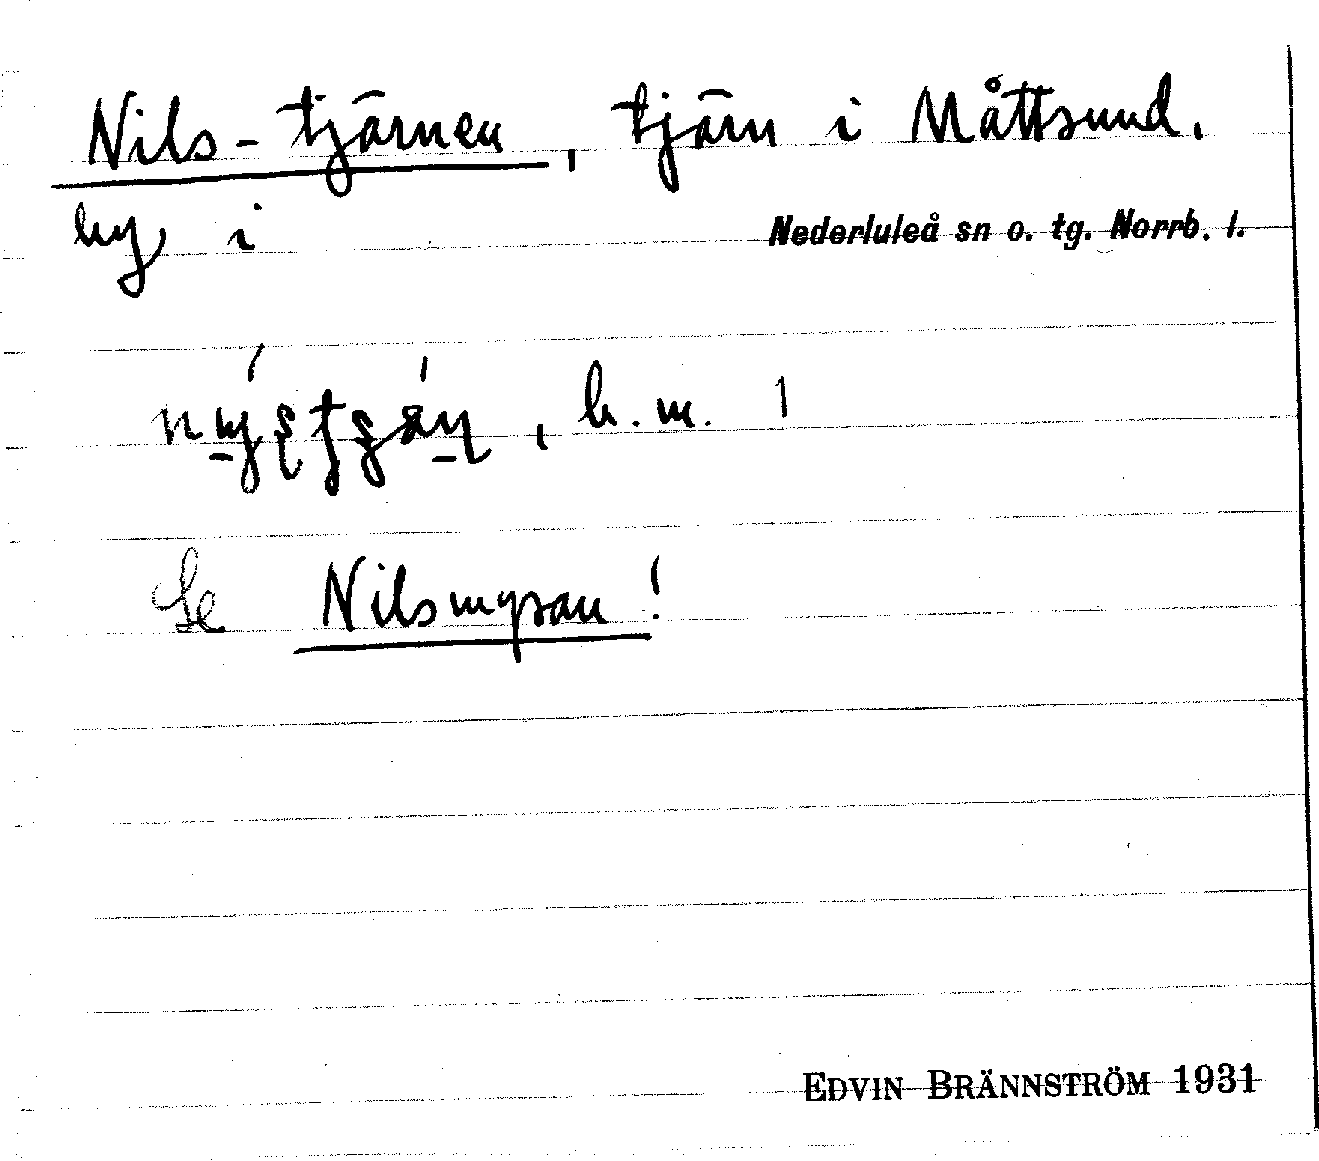 Nils-tjärnen, tjärn i Måttsund,
by i Nederluleå sn o. tg. Norrb. l.
b. m. 1
Se Nilsmyran!
EDVIN BRÄNNSTRÖM 1931